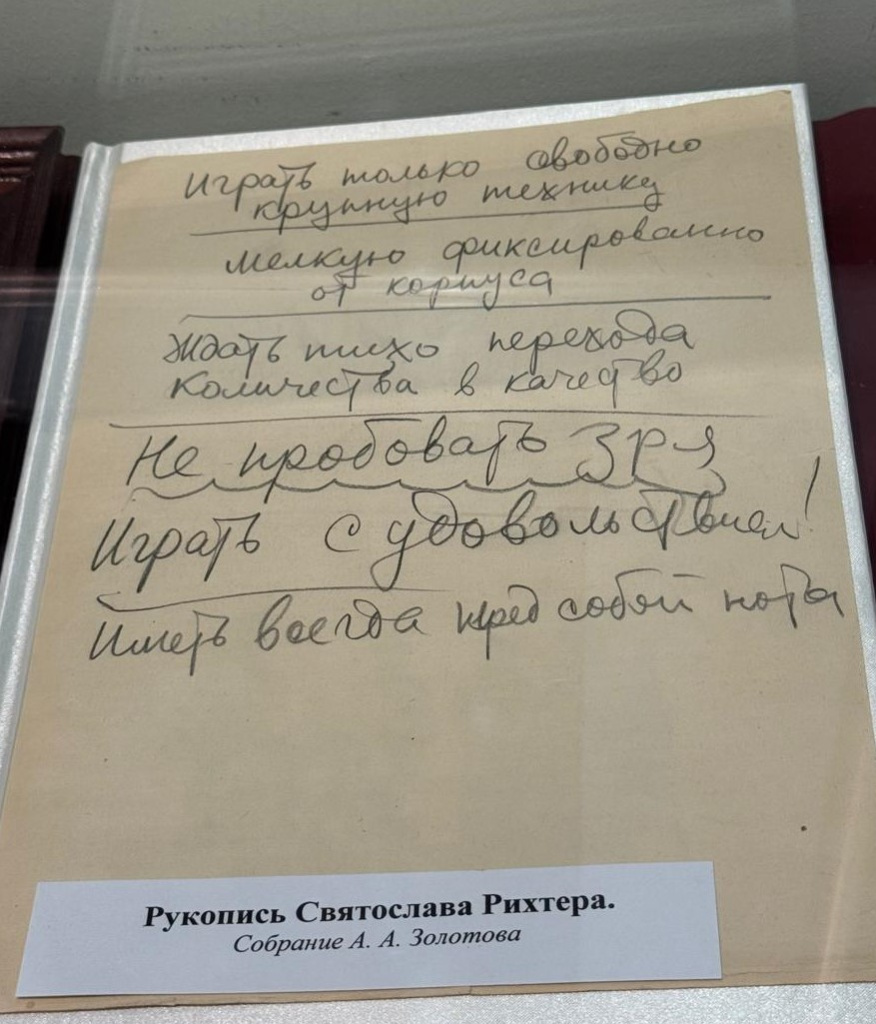 Играть только свободно
крупную технику
мелкую фиксированно
от корпуса
Ждать тихо перехода
количества в качество
Не пробовать зря
Играть с удовольствием!
Иметь всегда пред собой ноты
Рукопись Святослава Рихтера.
Собрание А. А. Золотова